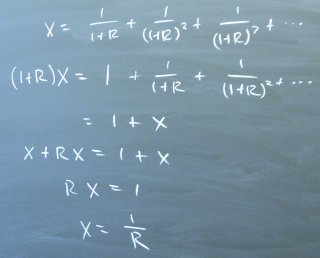 X = 1/(1+R) + 1/(1+R)² + 1/(1+R)³ + ...
(1+R)X = 1 + 1/(1+R) + 1/(1+R)² + ...
= 1 + X
X + RX = 1 + X
RX = 1
X = 1/R